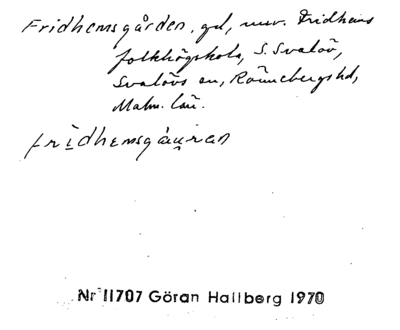 Fridhemsgården, gd, nuv. Fridhems
folkhögskola, S. Svalöv,
Svalövs sn, Rönnebergs hd,
Malm. län.
frìdhemsgåu̯ran
Nr 11707 Göran Hallberg 1970